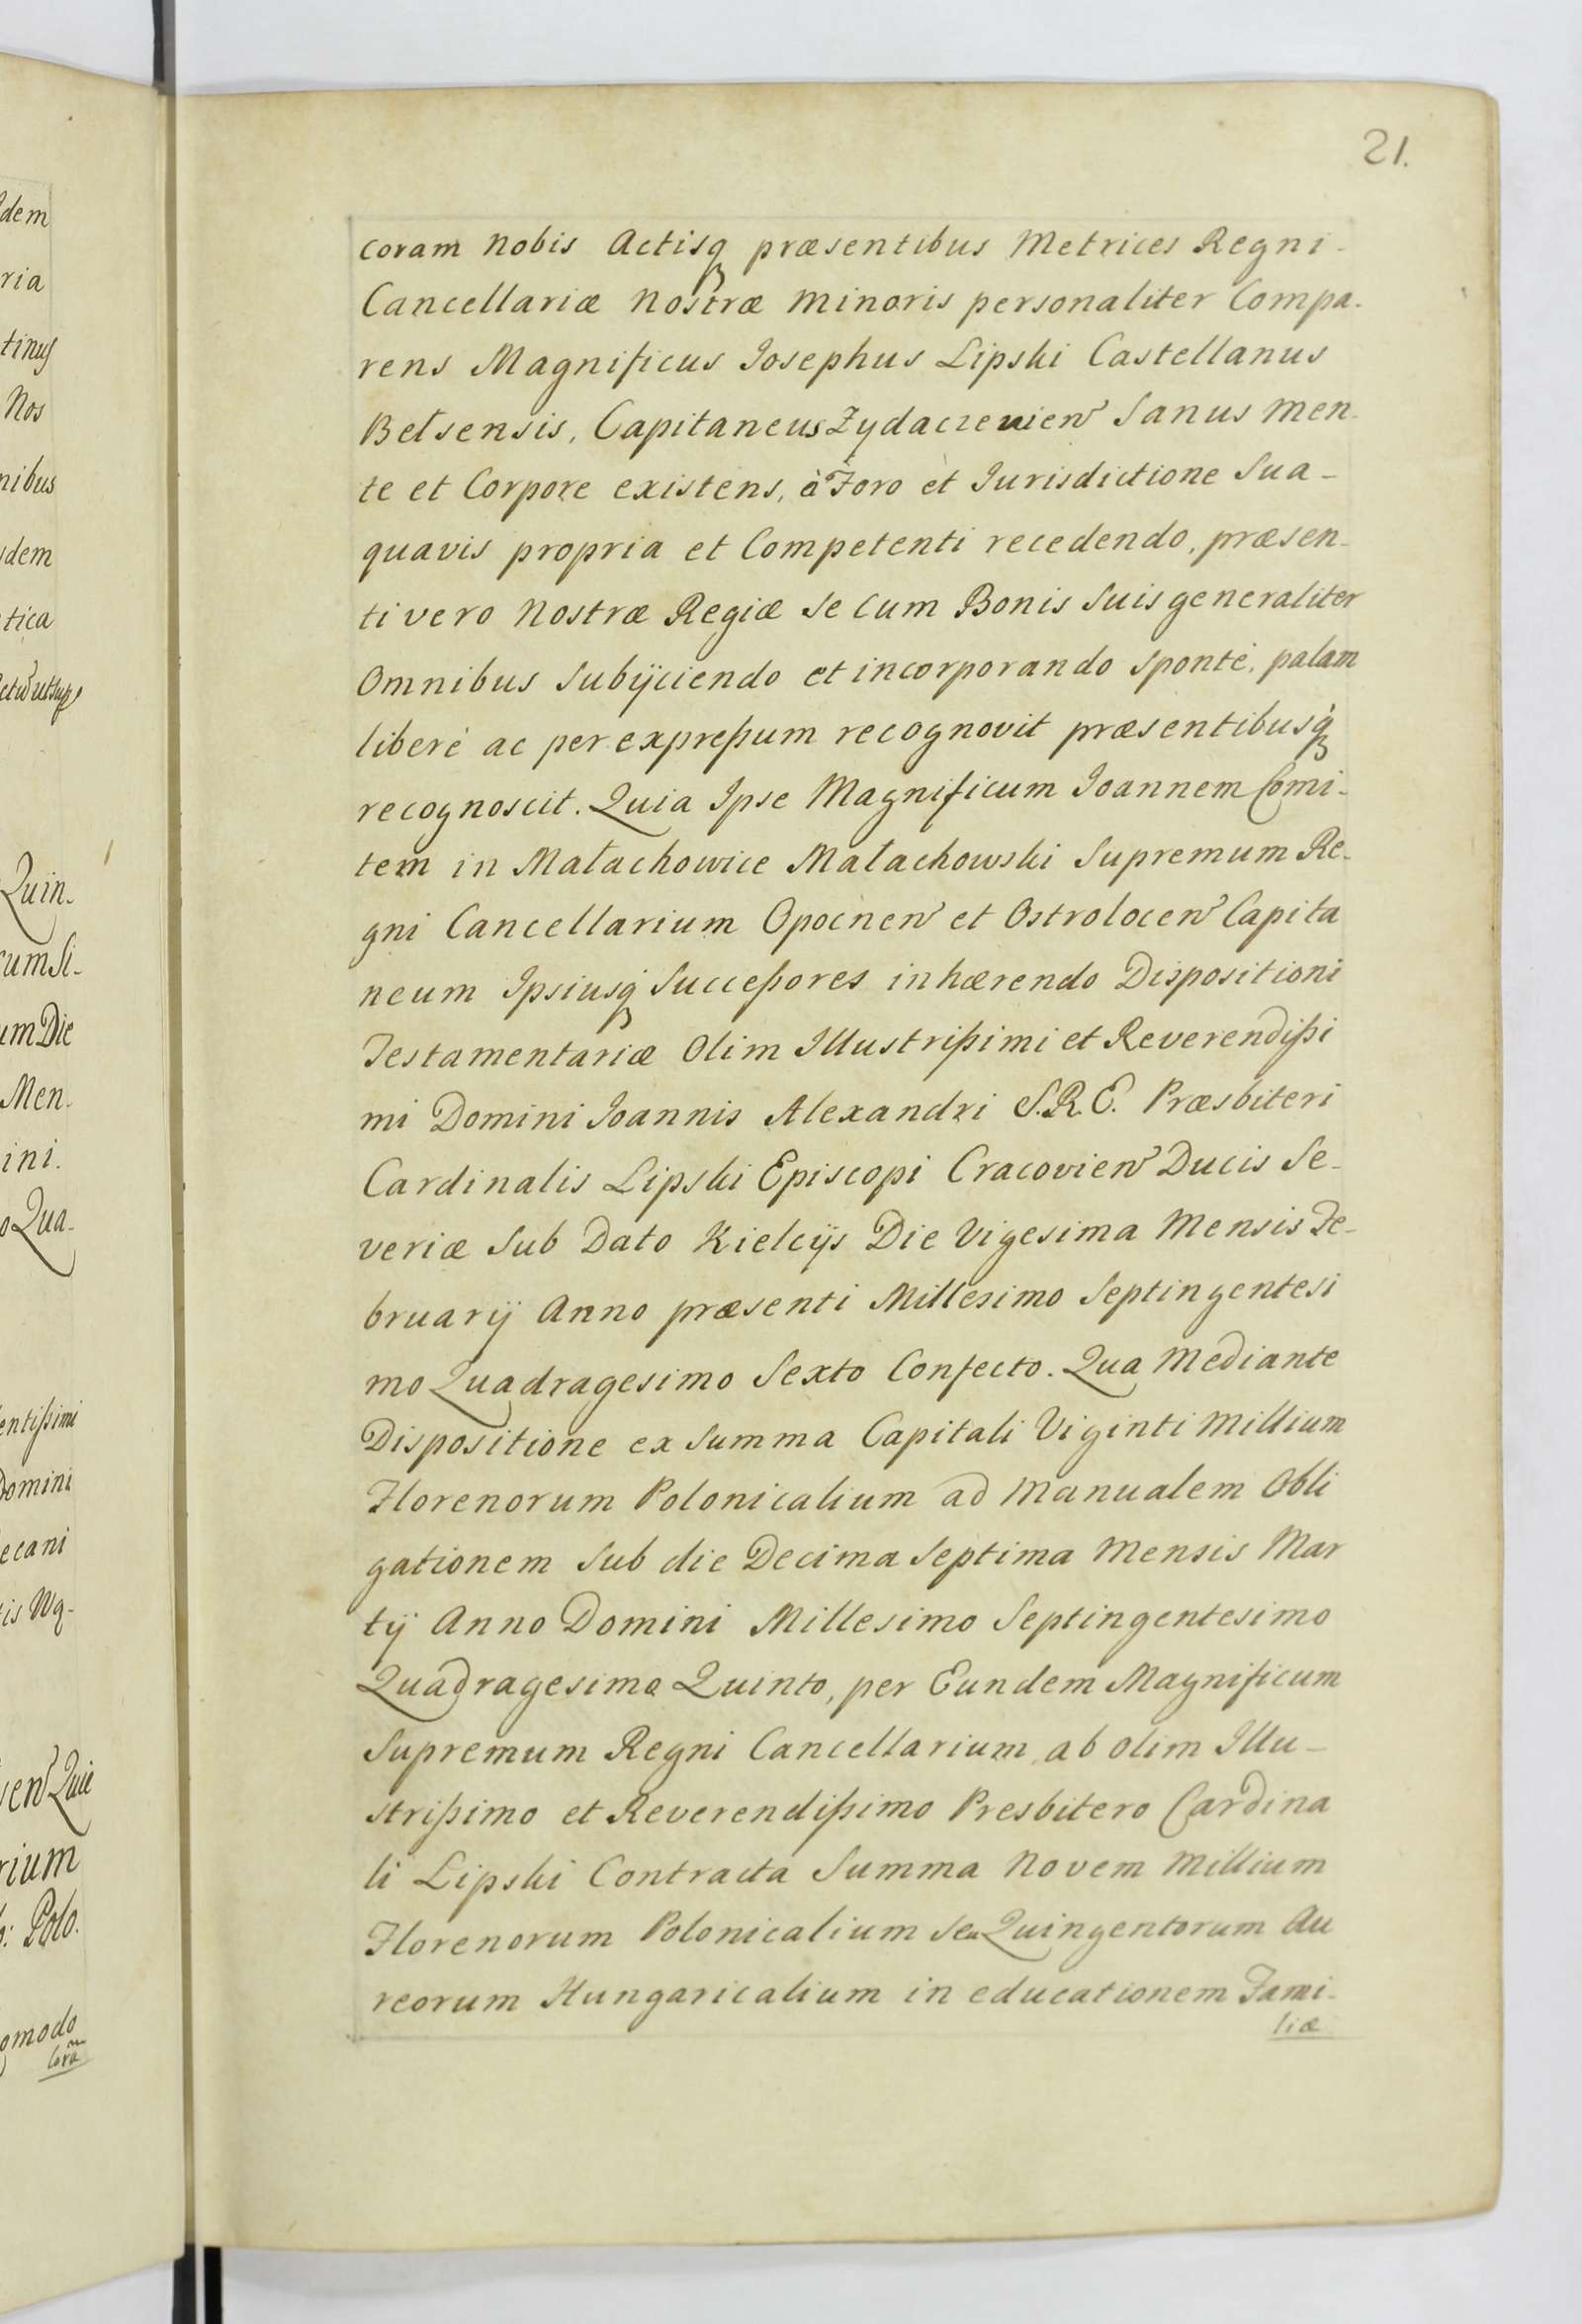 21.
coram Nobis Actisq præsentibus Metrices Regni-
Cancellariæ Nostræ Minoris personaliter Compa-
rens Magnificus Iosephus Lipski Castellanus
Bełsensis, Capitaneus Zydaczevien Sanus men-
te et Corpore existens, à Foro et Iurisdictione Sua-
quavis propria et Competenti recedendo, præsen-
ti vero Nostræ Regiæ se cum Bonis Suis generaliter
Omnibus Subijciendo et incorporando sponté, palam
liberé ac per expreßum recognovit præsentibusq
recognoscit. Quia Ipse Magnificum Ioannem Comi-
tem in Małachowice Małachowski Supremum Re-
gni Cancellarium Opocnen et Ostrolocen Capita
neum Ipsiusq Succeßores inhærendo Dispositioni
Testamentariæ Olim Illustrißimi et Reverendißi
mi Domini Ioannis Alexandri S.R.E. Præsbiteri
Cardinalis Lipski Episcopi Cracovien Ducis Se-
veriæ Sub Dato Kielcijs Die Vigesima Mensis Fe-
bruarij Anno præsenti Millesimo Septingentesi
mo Quadragesimo Sexto Confecto. Qua Mediante
Dispositione ex Summa Capitali Viginti Millium
Florenorum Polonicalium ad Manualem Obli
gationem Sub die Decima Septima Mensis Mar
tij Anno Domini Millesimo Septingentesimo
Quadragesimo Quinto, per Eundem Magnificum
Supremum Regni Cancellarium ab olim Illu-
strißimo et Reverendißimo Presbitero Cardina
li Lipski Contracta Summa Novem Millium
Florenorum Polonicalium seu Quingentorum Au
reorum Hungaricalium in educationem Fami-
liæ